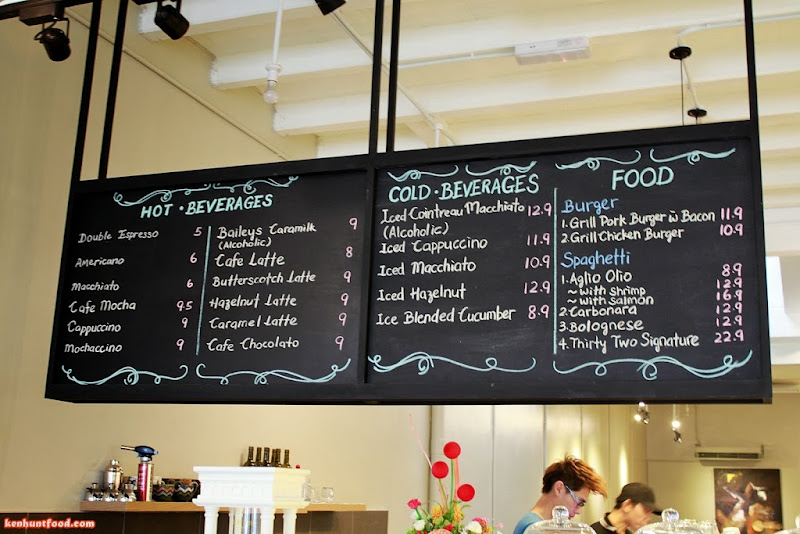 HOT • BEVERAGES
Double Espresso 5
Americano 6
Macchiato 6
Cafe Mocha 9.5
Cappuccino 9
Mochaccino 9
Baileys Caramilk 9
(Alcoholic)
Cafe Latte 8
Butterscotch Latte 9
Hazelnut Latte 9
Caramel Latte 9
Cafe Chocolato 9
COLD • BEVERAGES
Iced Cointreau Macchiato 12.9
(Alcoholic)
Iced Cappuccino 11.9
Iced Macchiato 10.9
Iced Hazelnut 12.9
Ice Blended Cucumber 8.9
FOOD
Burger
1. Grill Pork Burger w Bacon 11.9
2. Grill Chicken Burger 10.9
Spaghetti
1. Aglio Olio 8.9
~ with shrimp 12.9
~ with salmon 16.9
2. Carbonara 12.9
3. Bolognese 12.9
4. Thirty Two Signature 22.9
kenhuntfood.com